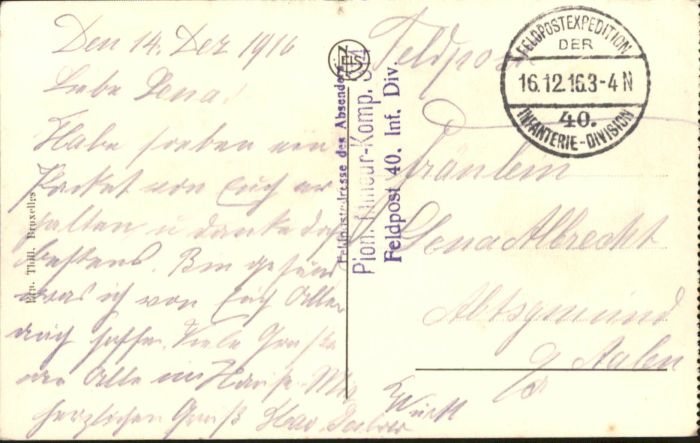 Den 14. Dez 1916
Liebe Lena!
Habe soeben ein
Packet von Euch er
halten u danke da
bestens. Bin gesund
was ich von Euch Allen
auch hoffe. Viele Grüße
an Alle im Hause. Mit
herzlichen Gruß
Ern. Thill, Bruxelles
Feldpostadresse des Absenders
Pion. Mineur-Komp.
Feldpost 40. Inf. Div.
FELDPOSTEXPEDITION
DER
16.12.16.3-4 N
40.
INFANTERIE-DIVISION
Feldpost
Fräulein
Lena Albrecht
Abtsgmünd
Aalen
Württ